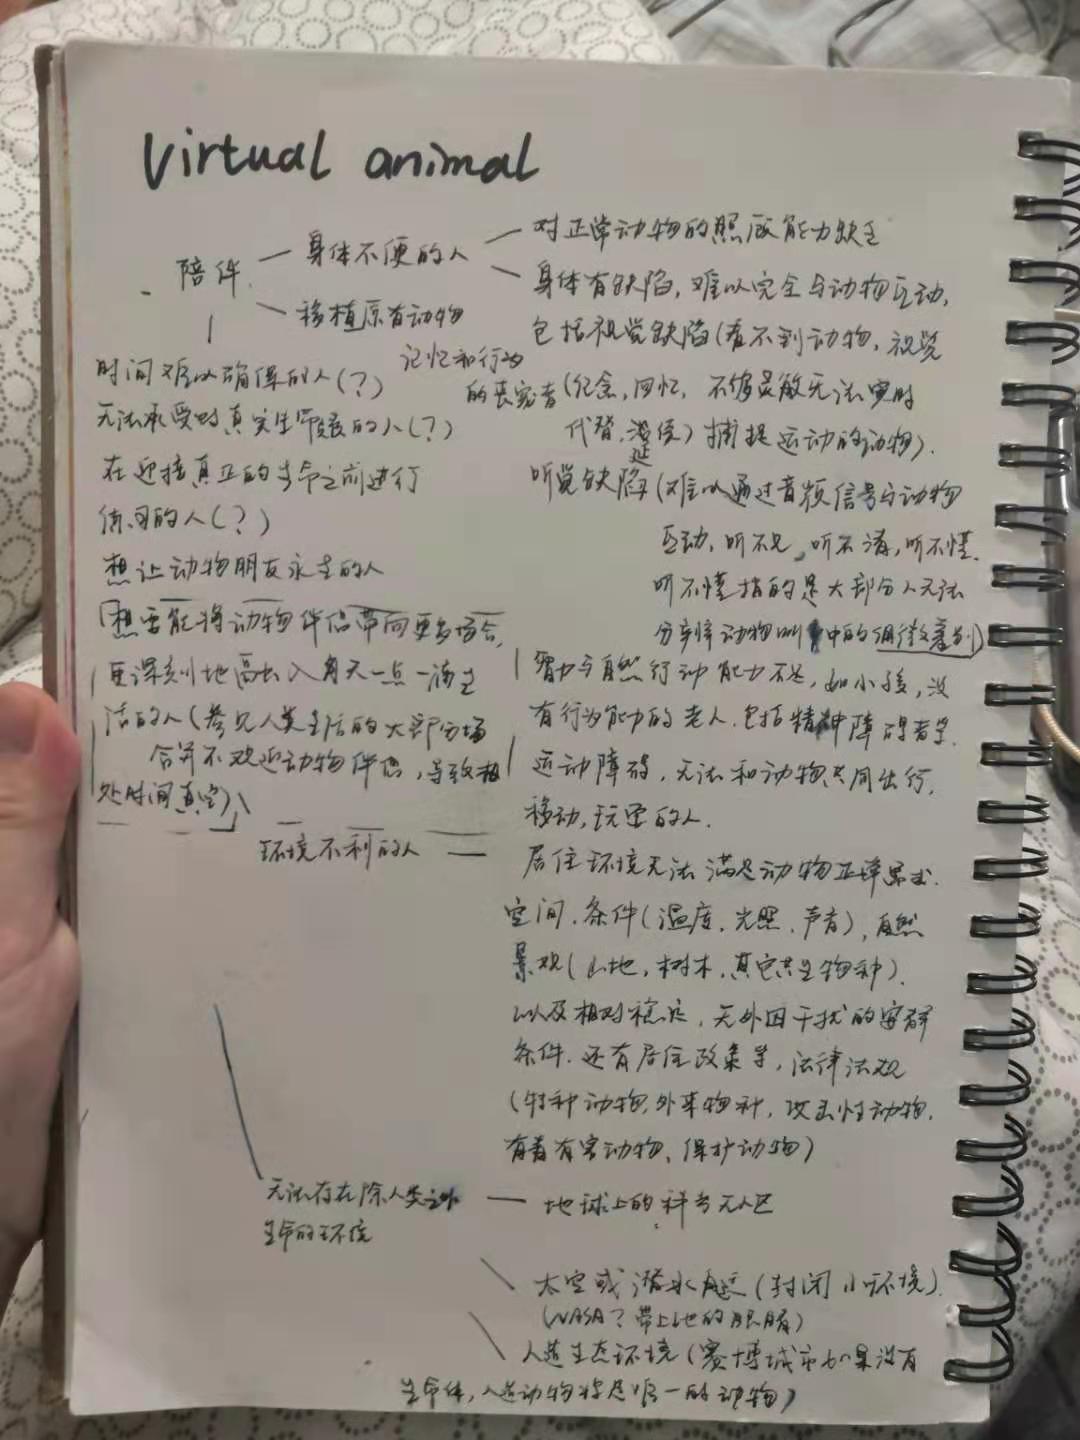 Virtual animal
陪伴
身体不便的人
对正常动物的照顾能力缺乏
身体有缺陷，难以完全与动物互动，
包括视觉缺陷（看不到动物，视觉
不够灵敏无法实时
捕捉运动的动物）.
移植原有动物
记忆和行为
的丧宠者（纪念，回忆，
代替，延续）
听觉缺陷（难以通过音频信号与动物
互动，听不见，听不清，听不懂.
听不懂指的是大部分人无法
分辨清动物叫中的细微差别）
智力与自然行动能力不足，如小孩，没
有行为能力的老人.包括精神障碍者等.
运动障碍，无法和动物共同出行，
移动，玩耍的人.
时间难以确保的人（？）
无法承受对真实生命的人（？）
在迎接真正的生命之前进行
练习的人（？）
想让动物朋友永生的人
想要能将动物伴侣带向更多场合，
更深刻地融入每天一点一滴生
活的人（参见人类生活的大部分场
合并不欢迎动物伴侣，导致相
处时间真空）
环境不利的人
居住环境无法满足动物正常需求.
空间.条件（温度.光照.声音），自然
景观（山地，树木，其它共生物种）.
以及相对稳定，无外因干扰的
条件.还有居住政策等，法律法规
（特种动物.外来物种，攻击性动物.
有毒有害动物、保护动物）
无法存在除人类之外
生命的环境
地球上的科考无人区
太空或潜水（封闭小环境）
（NASA？带上他的眼睛）
人造生态环境（赛博城市如果没有
生命体，人造动物将是唯一的动物）